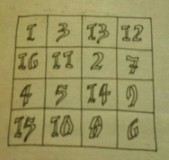 1 3 13 12
16 11 2 7
4 5 14 9
15 10 8 6